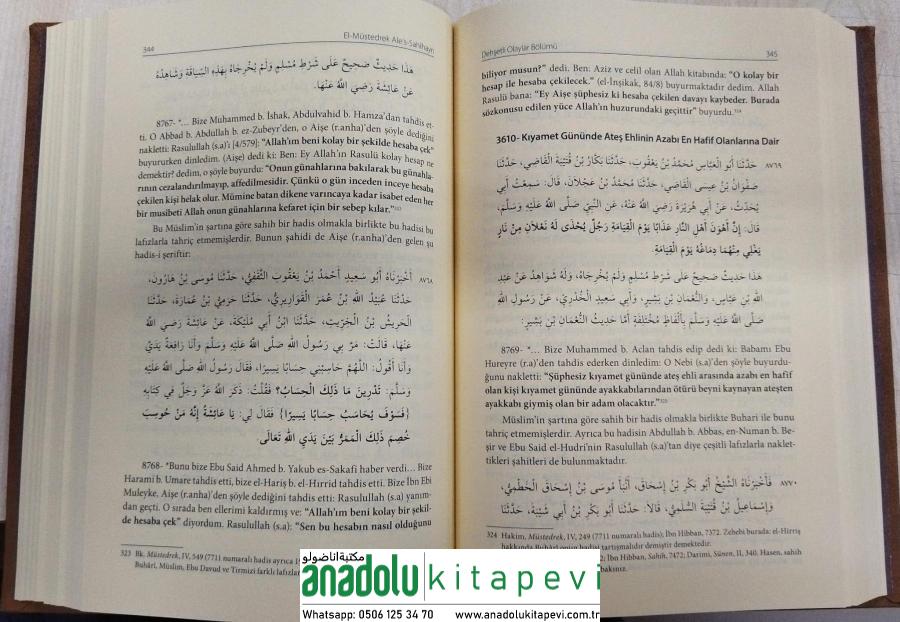 344
El-Müstedrek Ale's-Sahihayn
هَذَا حَدِيثٌ صَحِيحٌ عَلَى شَرْطِ مُسْلِمٍ وَلَمْ يُخْرِجَاهُ بِهَذِهِ السِّيَاقَةِ وَشَاهِدُهُ
عَنْ عَائِشَةَ رَضِيَ اللَّهُ عَنْهَا.
8767- "... Bize Muhammed b. Ishak, Abdulvahid b. Hamza'dan tahdis et-
ti. O Abbad b. Abdullah b. ez-Zubeyr'den, o Aişe (r.anha)'den şöyle dediğini
nakletti: Rasulullah (s.a)'ı [4/579]: "Allah'ım beni kolay bir şekilde hesaba çek"
buyururken dinledim. (Aişe) dedi ki: Ben: Ey Allah'ın Rasulü kolay hesap ne
demektir? dedim, o şöyle buyurdu: "Onun günahlarına bakılarak bu günahla-
rının cezalandırılmayıp, affedilmesidir. Çünkü o gün inceden inceye hesaba
çekilen kişi helak olur. Mümine batan dikene varıncaya kadar isabet eden her
bir musibeti Allah onun günahlarına kefaret için bir sebep kılar."323
Bu Müslim'in şartına göre sahih bir hadis olmakla birlikte bu hadisi bu
lafızlarla tahriç etmemişlerdir. Bunun şahidi de Aişe (r.anha)'den gelen şu
hadis-i şeriftir:
٨٧٦٨ أَخْبَرَنَاهُ أَبُو سَعِيدٍ أَحْمَدُ بْنُ يَعْقُوبَ الثَّقَفِيُّ، حَدَّثَنَا مُوسَى بْنُ هَارُونَ،
حَدَّثَنَا عُبَيْدُ اللَّهِ بْنُ عُمَرَ الْقَوَارِيرِيُّ، حَدَّثَنَا حَرَمِيُّ بْنُ عُمَارَةَ، حَدَّثَنَا
الْحَرِيشُ بْنُ الْخِرِّيتِ، حَدَّثَنَا ابْنُ أَبِي مُلَيْكَةَ، عَنْ عَائِشَةَ رَضِيَ اللَّهُ
عَنْهَا، قَالَتْ: مَرَّ بِي رَسُولُ اللَّهِ صَلَّى اللَّهُ عَلَيْهِ وَسَلَّمَ وَأَنَا رَافِعَةٌ يَدَيَّ
وَأَنَا أَقُولُ: اللَّهُمَّ حَاسِبْنِي حِسَابًا يَسِيرًا، فَقَالَ رَسُولُ اللَّهِ صَلَّى اللَّهُ عَلَيْهِ
وَسَلَّمَ: تَدْرِينَ مَا ذَلِكَ الْحِسَابُ؟ فَقُلْتُ: ذَكَرَ اللَّهُ عَزَّ وَجَلَّ فِي كِتَابِهِ
{فَسَوْفَ يُحَاسَبُ حِسَابًا يَسِيرًا} فَقَالَ لِي: يَا عَائِشَةُ إِنَّهُ مَنْ حُوسِبَ
خُصِمَ ذَلِكَ الْمَمَرُّ بَيْنَ يَدَيِ اللَّهِ تَعَالَى.
8768- "Bunu bize Ebu Said Ahmed b. Yakub es-Sakafi haber verdi... Bize
Harami b. Umare tahdis etti, bize el-Hariş b. el-Hırrid tahdis etti. Bize İbn Ebi
Muleyke, Aişe (r.anha)'den şöyle dediğini tahdis etti: Rasulullah (s.a) yanım-
dan geçti. O sırada ben ellerimi kaldırmış ve: "Allah'ım beni kolay bir şekil-
de hesaba çek" diyordum. Rasulullah (s.a): "Sen bu hesabın nasıl olduğunu
323 Bk. Müstedrek, IV, 549 (7711 numaralı hadis ayrıca
Buhârî, Müslim, Ebu Davud ve Tirmizi farklı lafızla
Dehşetli Olaylar Bölümü
345
biliyor musun?" dedi. Ben: Aziz ve celil olan Allah kitabında: "O kolay bir
hesap ile hesaba çekilecek." (el-İnşikak, 84/8) buyurmaktadır dedim. Allah
Rasulü bana: "Ey Aişe şüphesiz ki hesaba çekilen davayı kaybeder. Burada
sözkonusu edilen yüce Allah'ın huzurundaki geçittir" buyurdu.324
3610- Kıyamet Gününde Ateş Ehlinin Azabı En Hafif Olanlarına Dair
٨٧٦٩ حَدَّثَنَا أَبُو الْعَبَّاسِ مُحَمَّدُ بْنُ يَعْقُوبَ، حَدَّثَنَا بَكَّارُ بْنُ قُتَيْبَةَ الْقَاضِي، حَدَّثَنَا
صَفْوَانُ بْنُ عِيسَى الْقَاضِي، حَدَّثَنَا مُحَمَّدُ بْنُ عَجْلَانَ، قَالَ: سَمِعْتُ أَبِي
يُحَدِّثُ، عَنْ أَبِي هُرَيْرَةَ رَضِيَ اللَّهُ عَنْهُ، عَنِ النَّبِيِّ صَلَّى اللَّهُ عَلَيْهِ وَسَلَّمَ،
قَالَ: إِنَّ أَهْوَنَ أَهْلِ النَّارِ عَذَابًا يَوْمَ الْقِيَامَةِ رَجُلٌ يُحْذَى لَهُ نَعْلَانِ مِنْ نَارٍ
يَغْلِي مِنْهُمَا دِمَاغُهُ يَوْمَ الْقِيَامَةِ.
هَذَا حَدِيثٌ صَحِيحٌ عَلَى شَرْطِ مُسْلِمٍ وَلَمْ يُخْرِجَاهُ، وَلَهُ شَوَاهِدُ عَنْ عَبْدِ
اللَّهِ بْنِ عَبَّاسٍ، وَالنُّعْمَانِ بْنِ بَشِيرٍ، وَأَبِي سَعِيدٍ الْخُدْرِيِّ، عَنْ رَسُولِ اللَّهِ
صَلَّى اللَّهُ عَلَيْهِ وَسَلَّمَ بِأَلْفَاظٍ مُخْتَلِفَةٍ أَمَّا حَدِيثُ النُّعْمَانِ بْنِ بَشِيرٍ:
8769- "... Bize Muhammed b. Aclan tahdis edip dedi ki: Babamı Ebu
Hureyre (r.a)'den tahdis ederken dinledim: O Nebi (s.a)'den şöyle buyurdu-
ğunu nakletti: "Şüphesiz kıyamet gününde ateş ehli arasında azabı en hafif
olan kişi kıyamet gününde ayakkabılarından ötürü beyni kaynayan ateşten
ayakkabı giymiş olan bir adam olacaktır."325
Müslim'in şartına göre sahih bir hadis olmakla birlikte Buhari ile bunu
tahriç etmemişlerdir. Ayrıca bu hadisin Abdullah b. Abbas, en-Numan b. Be-
şir ve Ebu Said el-Hudri'nin Rasulullah (s.a)'tan diye çeşitli lafızlarla naklet-
tikleri şahitleri de bulunmaktadır.
٨٧٧٠ فَأَخْبَرَنَاهُ الشَّيْخُ أَبُو بَكْرِ بْنُ إِسْحَاقَ، أَنْبَأَ مُوسَى بْنُ إِسْحَاقَ الْخَطْمِيُّ،
وَإِسْمَاعِيلُ بْنُ قُتَيْبَةَ السُّلَمِيُّ، قَالَا: حَدَّثَنَا أَبُو بَكْرِ بْنُ أَبِي شَيْبَةَ، حَدَّثَنَا
324 Hakim, Müstedrek, IV, 249 (7711 numaralı hadis); İbn Hibban, 7372. Zehebi burada: el-Hirriş
hakkında Buhârî onun hadisi tartışmalıdır demiştir demektedir.
2; İbn Hibban, Sahih, 7472; Darimi, Sünen, II, 340. Hasen, sahih
bakınız.
مكتبة اناضولو
anadolu kitapevi
Whatsapp: 0506 125 34 70 www.anadolukitapevi.com.tr